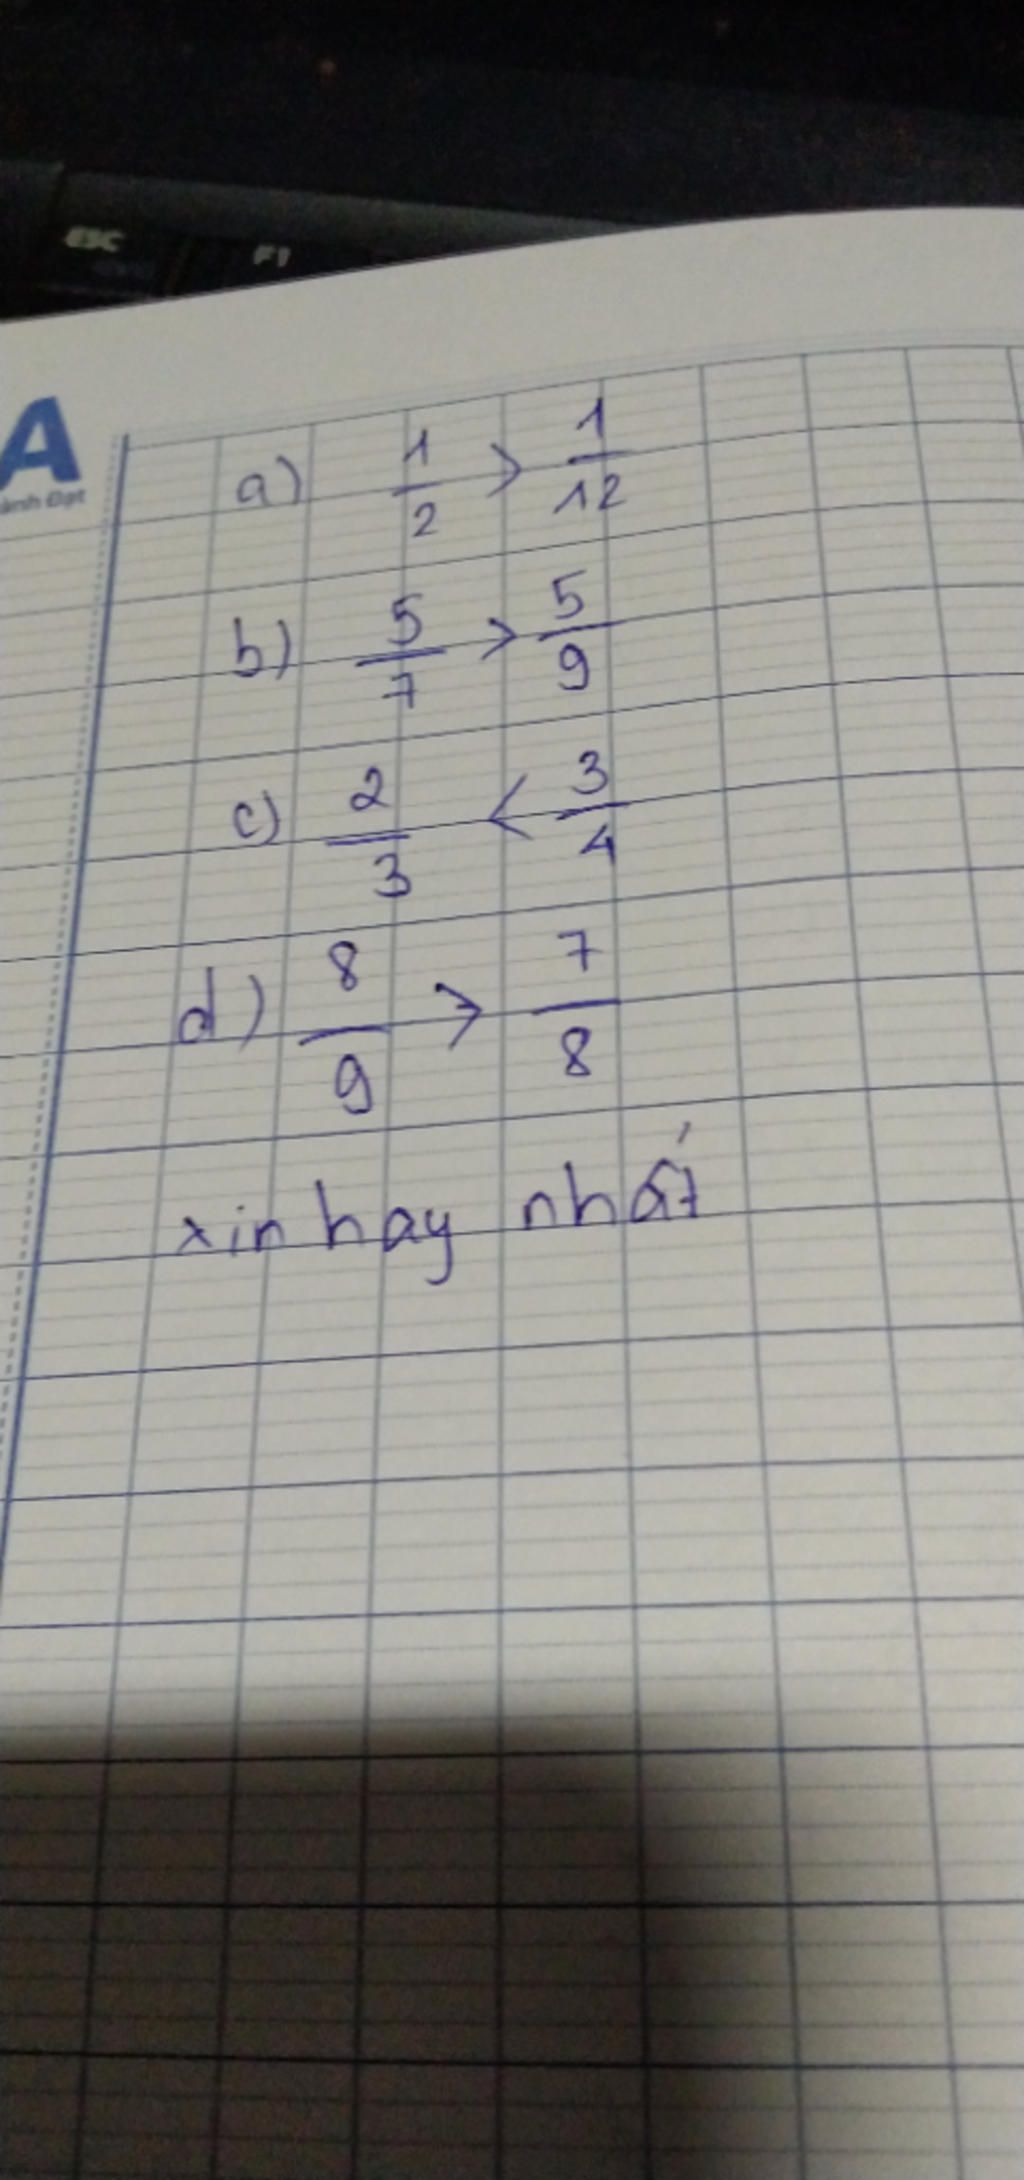 ESC F1
A
ành Đạt
a) 1/2 > 1/12
b) 5/7 > 5/9
c) 2/3 < 3/4
d) 8/9 > 7/8
xin hay nhất